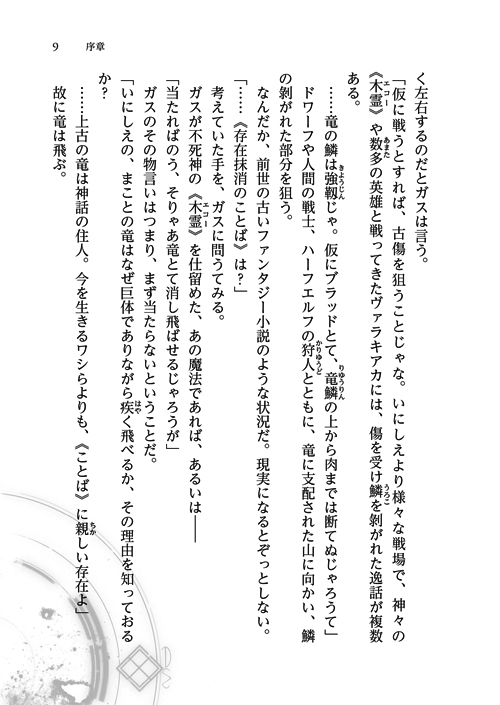 9 序章
く左右するのだとガスは言う。
「仮に戦うとすれば、古傷を狙うことじゃな。いにしえより様々な戦場で、神々の
《木霊》や数多の英雄と戦ってきたヴァラキアカには、傷を受け鱗を剝がれた逸話が複数
ある。
……竜の鱗は強靱じゃ。仮にブラッドとて、竜鱗の上から肉までは断てぬじゃろうて」
ドワーフや人間の戦士、ハーフエルフの狩人とともに、竜に支配された山に向かい、鱗
の剝がれた部分を狙う。
なんだか、前世の古いファンタジー小説のような状況だ。現実になるとぞっとしない。
「……《存在抹消のことば》は？」
考えていた手を、ガスに問うてみる。
ガスが不死神の《木霊》を仕留めた、あの魔法であれば、あるいは――
「当たればのう、そりゃあ竜とて消し飛ばせるじゃろうが」
ガスのその物言いはつまり、まず当たらないということだ。
「いにしえの、まことの竜はなぜ巨体でありながら疾く飛べるか、その理由を知っておる
か？
……上古の竜は神話の住人。今を生きるワシらよりも、《ことば》に親しい存在よ」
故に竜は飛ぶ。